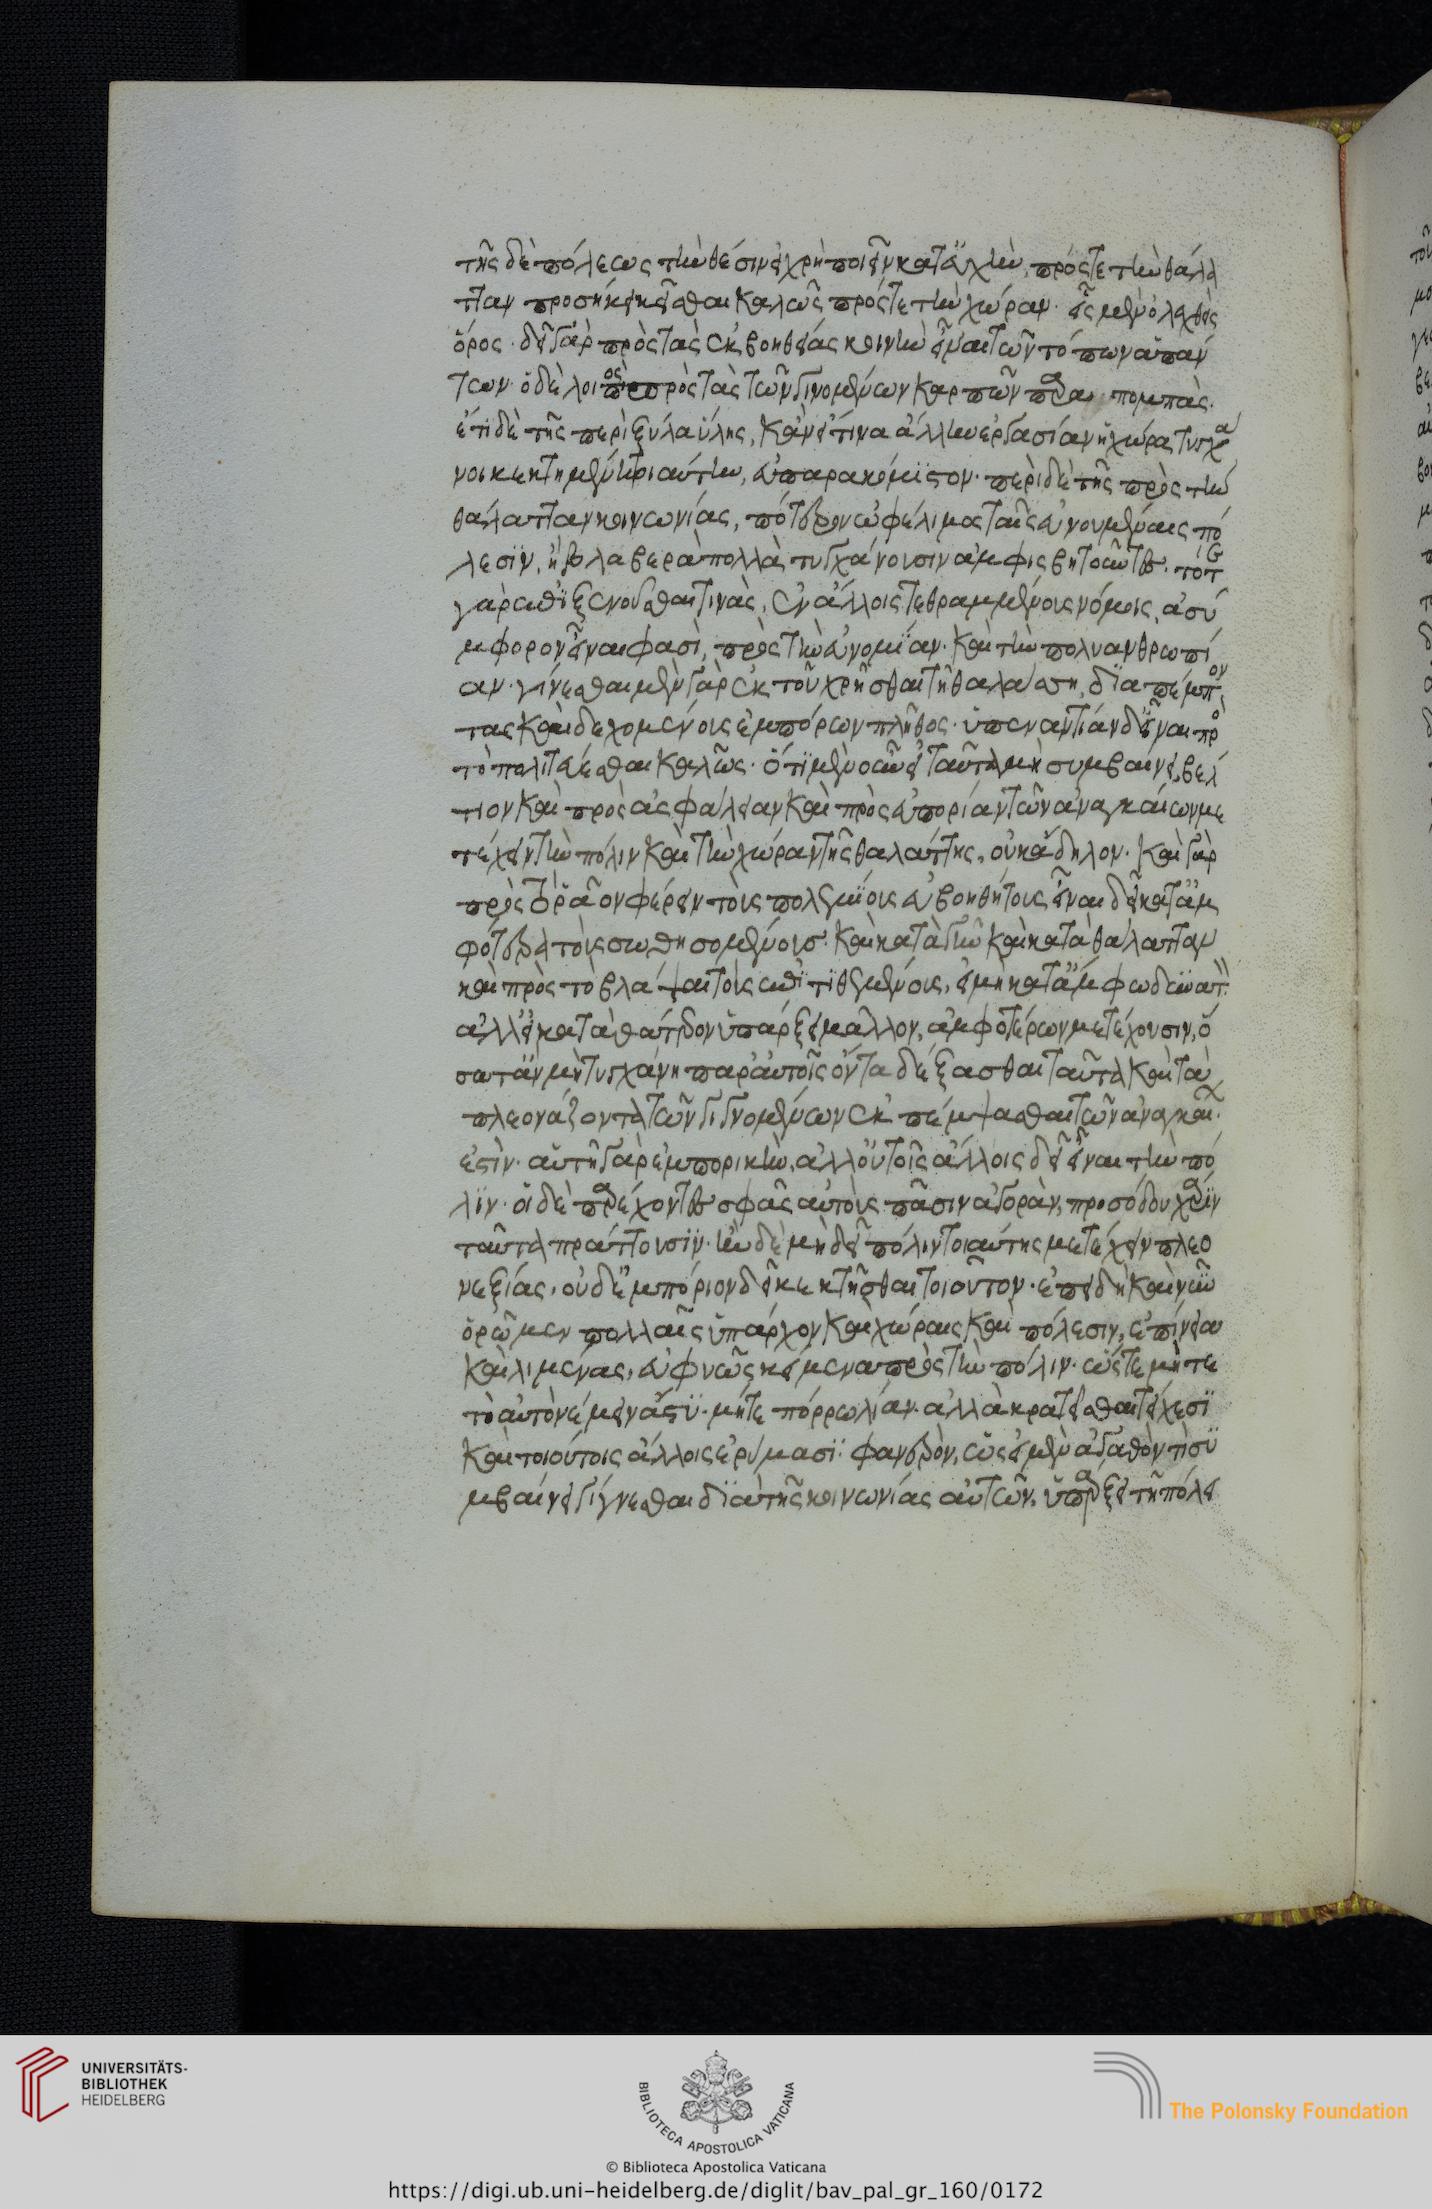 τῆς δὲ πόλεως τὴν θέσιν εἰ χρὴ ποιεῖν κατ' εὐχὴν, πρός τε τὴν θάλα
τταν προσήκει κεῖσθαι καλῶς πρός τε τὴν χώραν. εἷς μὲν ὁ λεχθεὶς
ὅρος. δεῖ γὰρ πρὸς τὰς ἐκβοηθείας κοινὴν εἶναι τῶν τόπων ἁπάν
των. ὁ δὲ λοιπὸς πρὸς τὰς τῶν γινομένων καρπῶν παραπομπὰς.
ἔτι δὲ τῆς περὶ ξύλα ὕλης, κἂν εἴ τινα ἄλλην ἐργασίαν ἡ χώρα τυγχά
νοι κεκτημένη τοιαύτην, εὐπαρακόμιστον. περὶ δὲ τῆς πρὸς τὴν
θάλατταν κοινωνίας, πότερον ὠφέλιμος ταῖς εὐνομουμέναις πό
λεσιν, ἢ βλαβερὰ πολλὰ τυγχάνουσιν ἀμφισβητοῦντες. τό τε
γὰρ ἐπιξενοῦσθαί τινας, ἐν ἄλλοις τεθραμμένοις νόμοις, ἀσύ
μφορον εἶναι φασὶ, πρὸς τὴν εὐνομίαν. καὶ τὴν πολυανθρωπί
αν. γίνεσθαι μὲν γὰρ ἐκ τοῦ χρῆσθαι τῇ θαλάσσῃ, διαπέμπον
τας καὶ δεχομένοις ἐμπόρων πλῆθος. ὑπεναντίαν δ' εἶναι πρὸ
τὸ πολιτεύεσθαι καλῶς. ὅτι μὲν οὖν εἰ ταῦτα μὴ συμβαίνει, βέλ
τιον καὶ πρὸς ἀσφάλειαν καὶ πρὸς εὐπορίαν τῶν ἀναγκαίων με
τέχειν τὴν πόλιν καὶ τὴν χώραν τῆς θαλάττης, οὐκ ἄδηλον. καὶ γὰρ
πρὸς τὸ ῥᾷον φέρειν τοὺς πολεμίους εὐβοηθήτους εἶναι δεῖ κατ' ἄμ
φότερα τοὺς σωθησομένους. καὶ κατὰ γῆν καὶ κατὰ θάλατταν
καὶ πρὸς τὸ βλάψαι τοὺς ἐπιτιθεμένους, εἰ μὴ κατ' ἄμφω δυνατὸν
ἀλλ' εἰ κατὰ θάτερον ὑπάρξει μᾶλλον, ἀμφοτέρων μετέχουσιν, ὅ
σα τ' ἂν μὴ τυγχάνῃ παρ' αὐτοῖς ὄντα δέξασθαι ταῦτα καὶ τὰ
πλεονάζοντα τῶν γιγνομένων ἐκπέμψασθαι τῶν ἀναγκαί
ἐστὶν. αὐτῇ γὰρ ἐμπορικὴν, ἀλλ' οὐ τοῖς ἄλλοις δεῖ εἶναι τὴν πό
λιν. οἱ δὲ παρέχοντες σφᾶς αὐτοὺς πᾶσιν ἀγορὰν, προσόδου χάριν
ταῦτα πράττουσιν. ἣν δὲ μὴ δεῖ πόλιν τοιαύτης μετέχειν πλεο
νεξίας, οὐδ' ἐμπόριον δεῖ κεκτῆσθαι τοιοῦτον. ἐπεὶ δὴ καὶ νῦν
ὁρῶμεν πολλαῖς ὑπάρχον καὶ χώραις καὶ πόλεσιν, ἐπίνεια
καὶ λιμένας, εὐφυῶς κείμενα πρὸς τὴν πόλιν. ὥστε μήτε
τὸ αὐτὸ νέμειν ἄστυ. μήτε πόρρω λίαν. ἀλλὰ κρατεῖσθαι τείχεσι
καὶ τοιούτοις ἄλλοις ἐρύμασι. φανερὸν, ὡς εἰ μὲν ἀγαθόν τι συ
μβαίνει γίγνεσθαι διὰ τῆς κοινωνίας αὐτῶν, ὑπάρξει τῇ πόλει
UNIVERSITÄTS-
BIBLIOTHEK
HEIDELBERG
BIBLIOTECA APOSTOLICA VATICANA
The Polonsky Foundation
© Biblioteca Apostolica Vaticana
https://digi.ub.uni-heidelberg.de/diglit/bav_pal_gr_160/0172